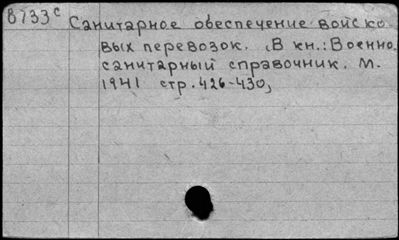 8733с
Санитарное обеспечение войско
вых перевозок. В кн.: Военно.
санитарный справочник. М.
1941 стр. 426-430,